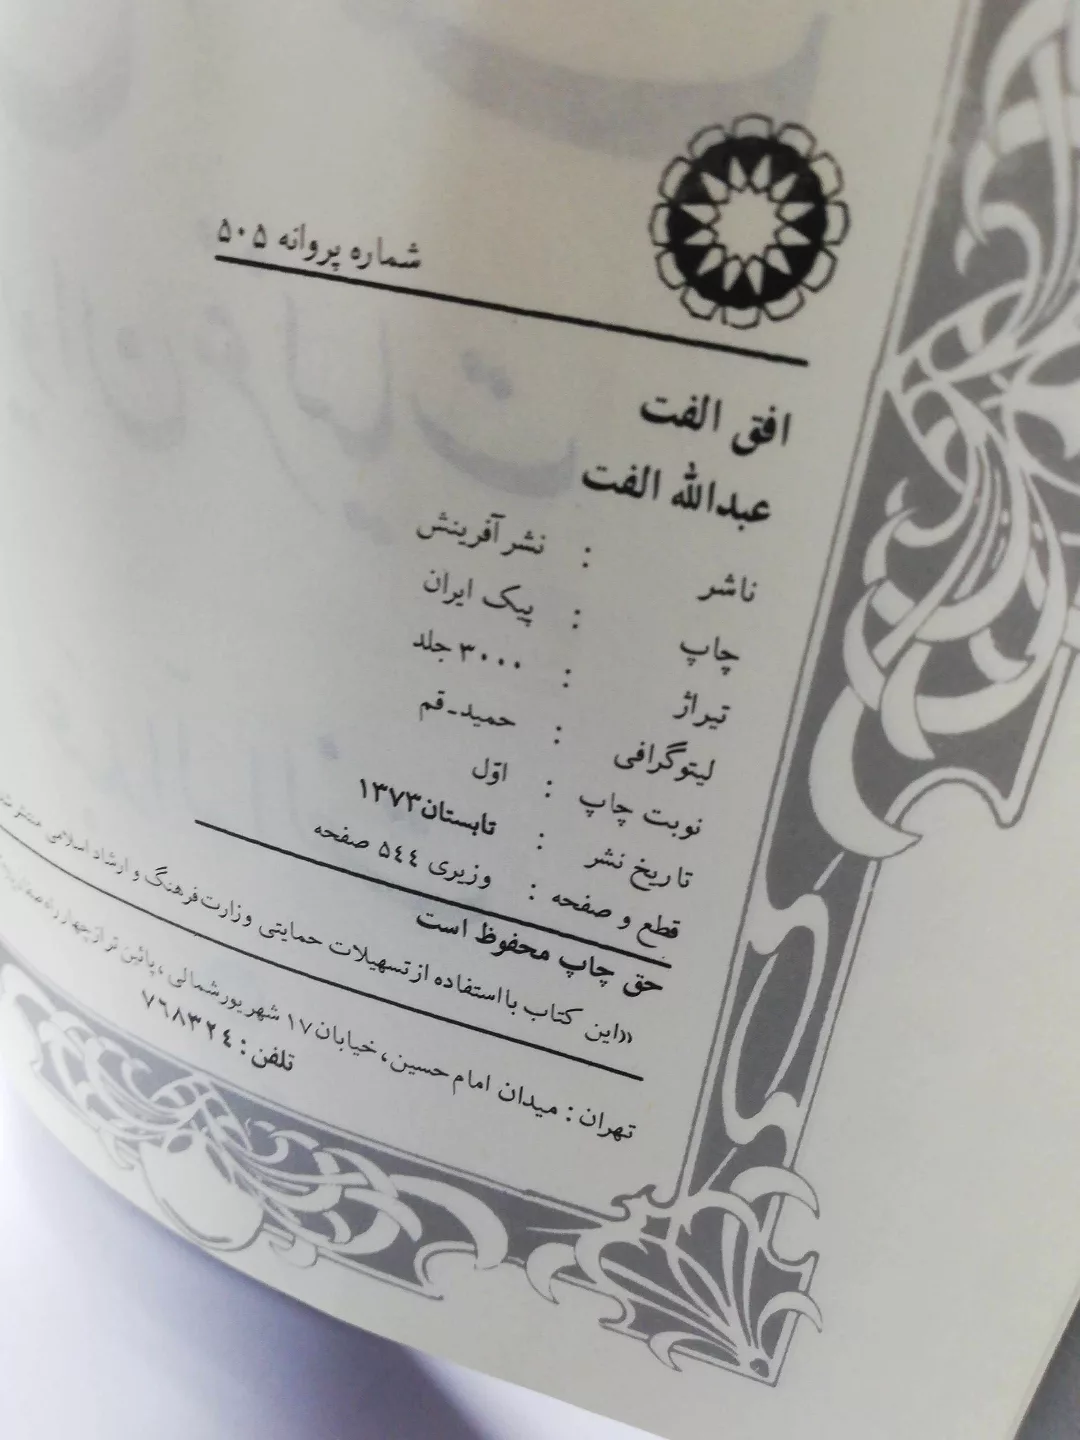 شماره پروانه ۵۰۵
افق الفت
عبدالله الفت
ناشر : نشر آفرینش
چاپ : پیک ایران
تیراژ : ۳۰۰۰ جلد
لیتوگرافی : حمید-قم
نوبت چاپ : اوّل
تاریخ نشر : تابستان۱۳۷۳
قطع و صفحه : وزیری ۵٤٤ صفحه
حق چاپ محفوظ است
«این کتاب با استفاده از تسهیلات حمایتی وزارت فرهنگ و ارشاد اسلامی منتشر
تهران : میدان امام حسین، خیابان ۱۷ شهریور شمالی، پائین تر از چهار راه
تلفن : ۷٦۸۳۲٤